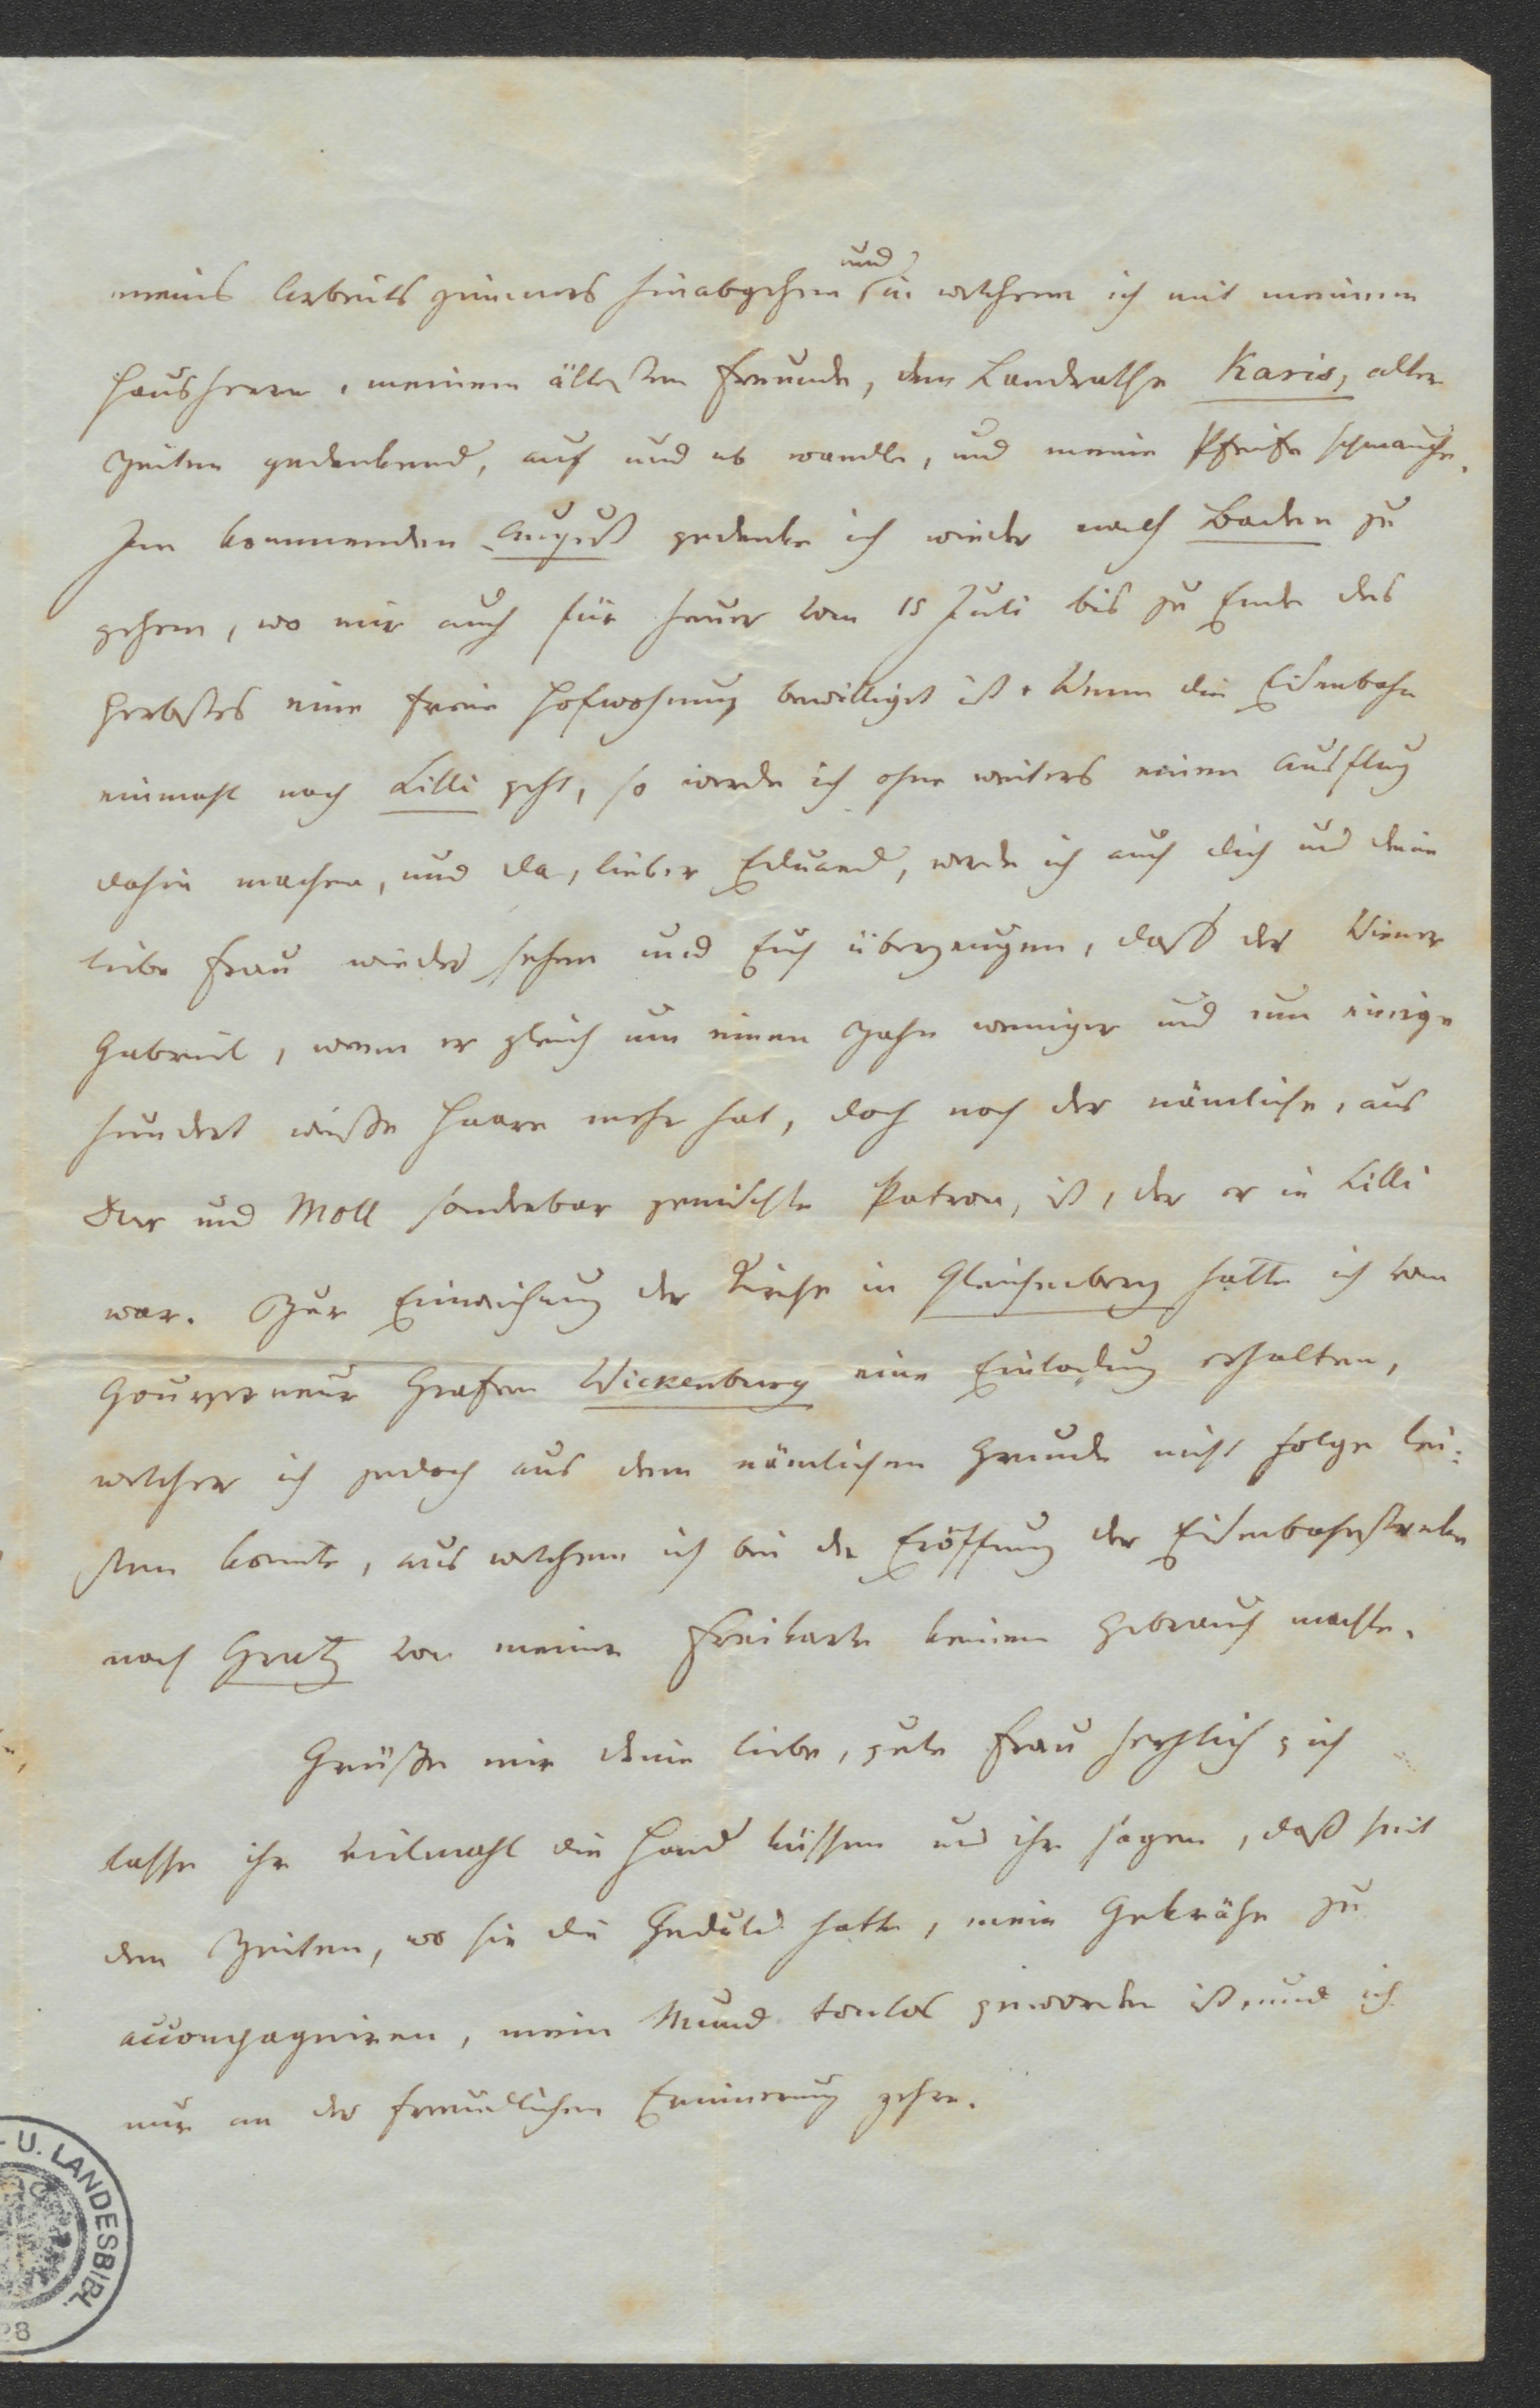 und
meines Arbeitszimmers hinabgehen in welchem ich mit meinem
Hausherrn, meinem ältesten Freunde, dem Landrathe Karis, alter
Zeiten gedenkend, auf und ab wandle, und meine Pfeife schmauche.
Im kommenden August gedenke ich wieder nach Baden zu
gehen, wo mir auch für heuer vom 15 Juli bis zu Ende des
Herbstes eine freie Hofwohnung bewilligt ist. Wenn die Eisenbahn
einmahl nach Cilli geht, so werde ich ohne weiters einen Ausflug
dahin machen, und da, lieber Eduard, werde ich auch dich und deine
liebe Frau wieder sehen und Euch überzeugen, daß der Wiener
Gabriel, wenn er gleich um einen Zahn weniger und um einige
hundert weiße Haare mehr hat, doch noch der nämliche, aus
Dur und Moll sonderbar gemischte Patron, ist, der er in Cilli
war. Zur Einweihung der Kirche in Gleichenberg hatte ich vom
Gouverneur Grafen Wickenburg eine Einladung erhalten,
welcher ich jedoch aus dem nämlichen Grunde nicht Folge lei-
sten konnte, aus welchem ich bei der Eröffnung der Eisenbahnstrecke
nach Gratz von meiner Freikarte keinen Gebrauch machte.
Grüße mir deine liebe, gute Frau herzlich; ich
lasse ihr vielmahl die Hand küssen und ihr sagen, daß seit
den Zeiten, wo sie die Geduld hatte, mein Gekrähe zu
accompagniren, mein Mund tonlos geworden ist, und ich
nur an der freundlichen Erinnerung zehre.
U. LANDESBIBL.
28